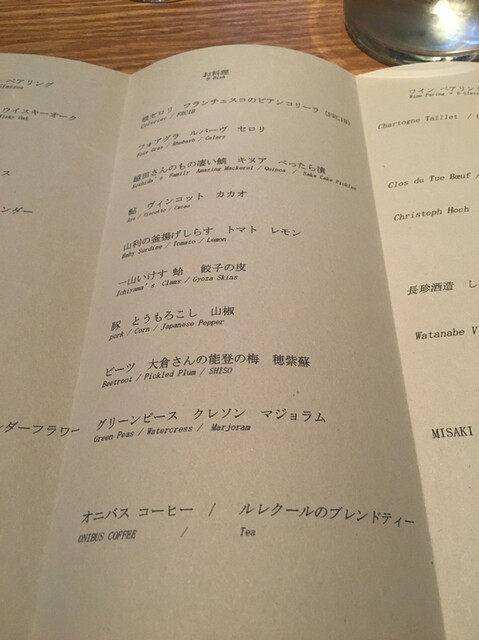 お料理
根セロリ フランチェスコのビアンコリーラ (FRCIR)
Celeriac / FRCIR
フォアグラ ルバーヴ セロリ
Foie Gras / Rhubarb / Celery
越田さんのもの凄い鯖 キヌア べったら漬
Koshida's Family Amazing Mackerel / Quinoa / Sake Cake Pickles
鮎 ヴィンコット カカオ
Ayu / Vincotto / Cacao
山利の釜揚げしらす トマト レモン
Baby Sardine / Tomato / Lemon
一山いけす 蛤 餃子の皮
Ichiyama's Clams / Gyoza Skins
豚 とうもろこし 山椒
pork / Corn / Japanese Pepper
ビーツ 大倉さんの能登の梅 穂紫蘇
Beetroot / Pickled Plum / SHISO
グリーンピース クレソン マジョラム
Green Peas / Watercress / Marjoram
オニバス コーヒー / ルレクールのブレンドティー
ONIBUS COFFEE / Tea
ペアリング
ウイスキーオーク
ス
ンダー
ンダーフラワー
ワイン ペアリング
Chartogne Taillet /
Clos du Tue Bœuf /
Christoph Hoch
長珍酒造 し
Watanabe V
MISAKI